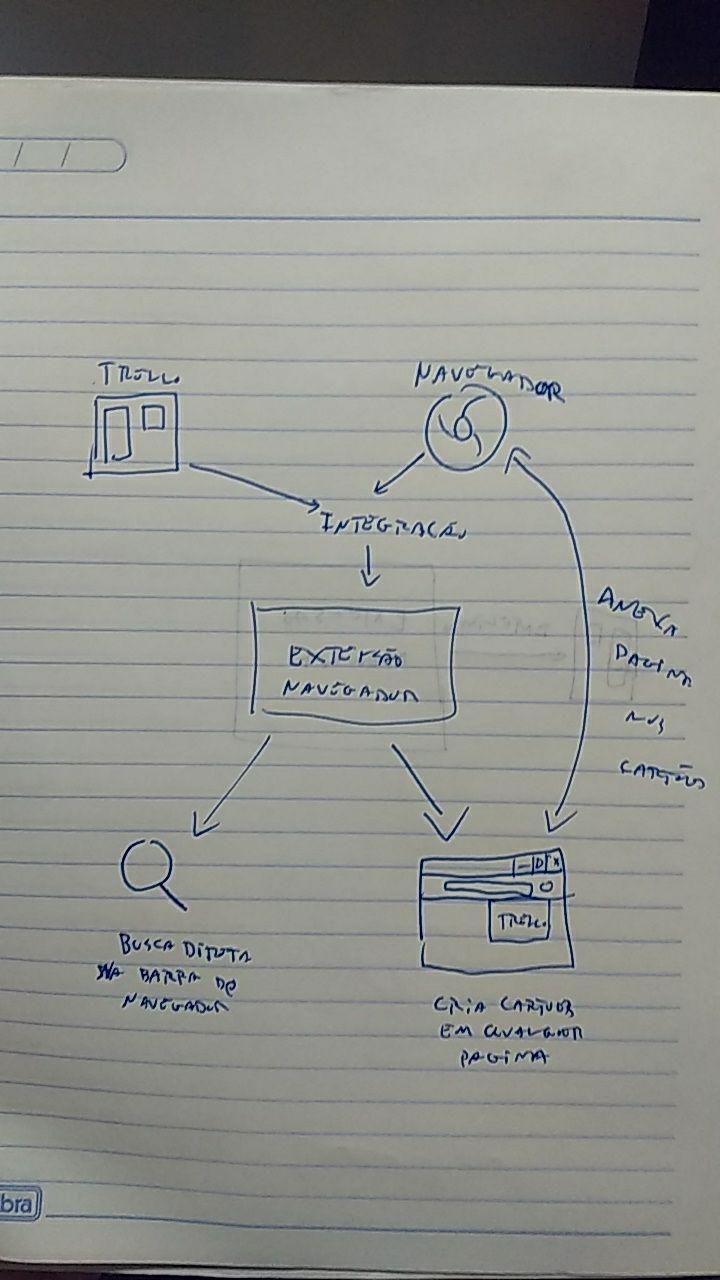 / /
TRELLO
NAVEGADOR
INTEGRAÇÃO
EXTENSÃO
NAVEGADOR
ANEXA
PAGINA
NOS
CARTÕES
TRELLO
BUSCA DIRETA
NA BARRA DO
NAVEGADOR
CRIA CARTOES
EM QUALQUER
PAGINA
bra